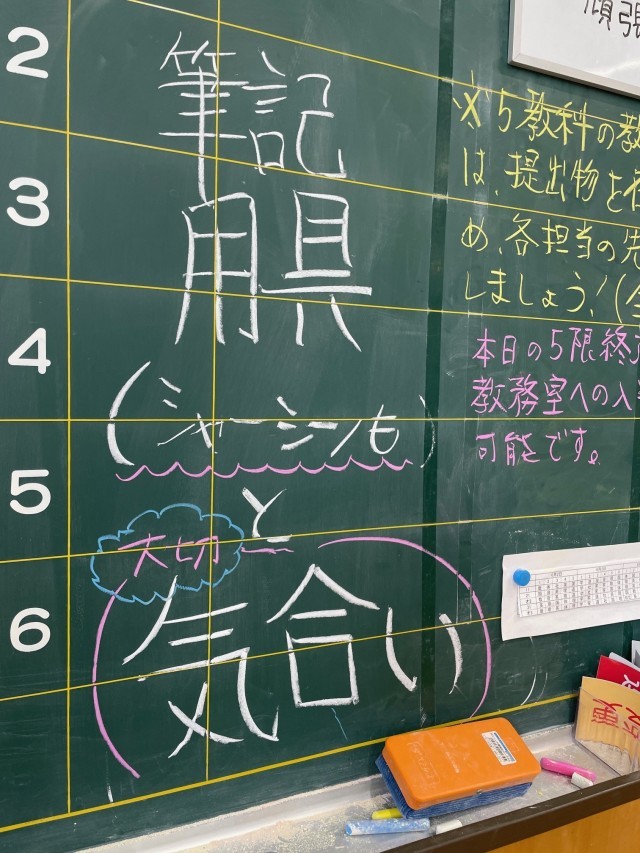 頑張
2
3
4
5
6
筆記
用具
(シャーシンも)
と
大切
気合い
※5教科の教
は、提出物を
め、各担当の先
しましょう!(
本日の5限終
教務室への入
可能です。